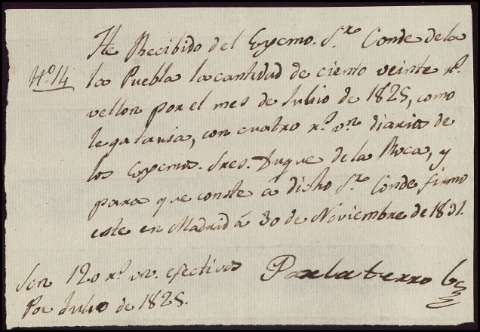 He Recibido del Excmo. Sr. Conde de la
Nº. 14
la Puebla la cantidad de ciento veinte rs.
vellon por el mes de Julio de 1825, como
legataria, con cuatro rs. vn. diarios de
los Excmos. Sres. Duque de la Roca, y
para que conste a dicho Sr. Conde firmo
este en Madrid á 30 de Noviembre de 1831.
Son 120 rs. vn. efectivos
Por Julio de 1825.